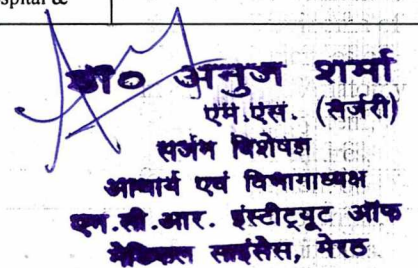 spital &
डॉ० अनुज शर्मा
एम.एस. (सर्जरी)
सर्जन विशेषज्ञ
आचार्य एवं विभागाध्यक्ष
एन.सी.आर. इंस्टीट्यूट ऑफ
मेडिकल साइंसेस, मेरठ